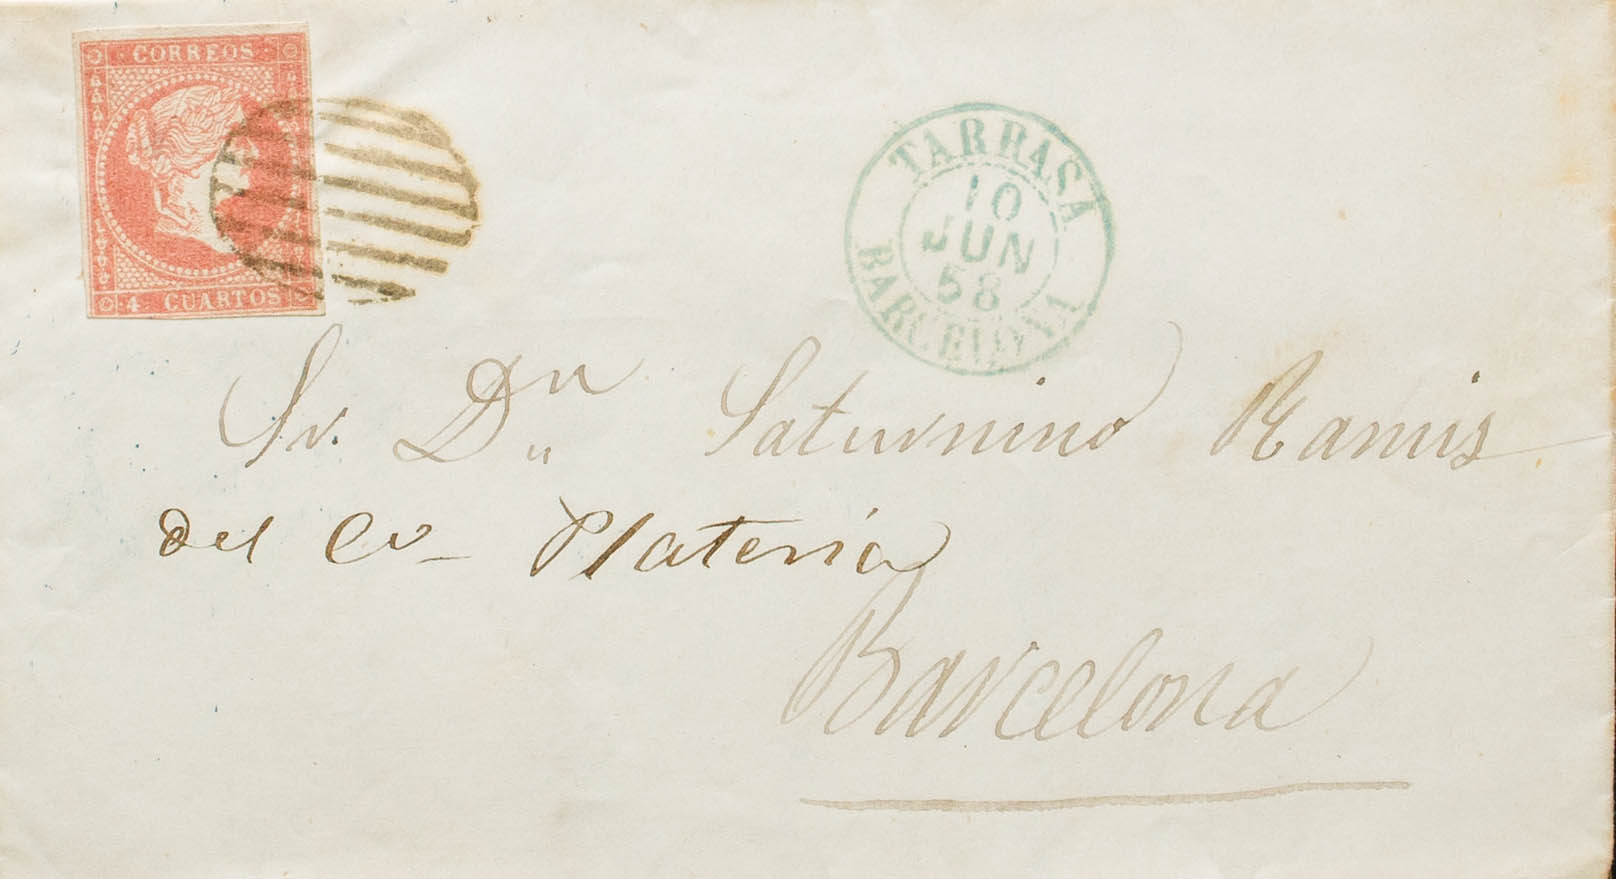 CORREOS
4 CUARTOS
TARRASA
10
JUN
58
BARCELONA
Sr. Dn Saturnino Ramis
del Co Platería
Barcelona